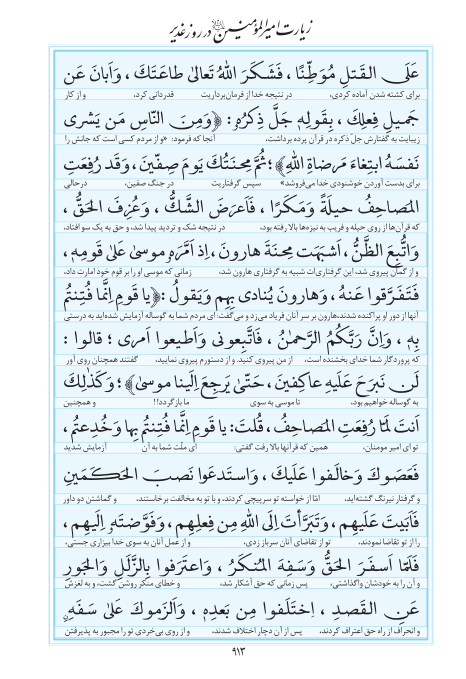 زیارت امیرالمؤمنین در روز غدیر
عَلَى القَتلِ مُوَطِّنًا ، فَشَكَرَ اللهُ تَعالىٰ طاعَتَكَ ، وَاَبانَ عَن
برای کشته شدن آماده کردی، در نتیجه خدا از فرمان‌برداریت قدردانی کرد، و از کار
جَميلِ فِعلِكَ ، بِقَولِهِ جَلَّ ذِكرُهُ: ﴿وَمِنَ النّاسِ مَن يَشرى
زیبایت به گفتارش جل ذکره در قرآن پرده برداشت، آنجا که فرمود: «و از مردم کسی است که جانش را
نَفسَهُ ابتِغاءَ مَرضاةِ اللهِ﴾؛ ثُمَّ مِحنَتُكَ يَومَ صِفّينَ، وَقَد رُفِعَتِ
برای بدست آوردن خوشنودی خدا می‌فروشد» سپس گرفتاریت در جنگ صفین، درحالی
المَصاحِفُ حيلَةً وَمَكرًا ، فَاَعرَضَ الشَّكُّ ، وَعُزِفَ الحَقُّ ،
که قرآن‌ها از روی حیله و فریب به نیزه‌ها بالا رفته بود، در نتیجه شک و تردید پیدا شد، و حق به یک سو افتاد،
وَاتُّبِعَ الظَّنُّ ، اَشبَهَت مِحنَةَ هارونَ، اِذ اَمَّرَهُ موسىٰ عَلىٰ قَومِهِ ،
و از گمان پیروی شد، این گرفتاری‌ات شبیه به گرفتاری هارون شد، زمانی که موسی او را بر قوم خود امارت داد،
فَتَفَرَّقوا عَنهُ ، وَهارونُ يُنادى بِهِم وَيَقولُ :﴿يا قَومِ اِنَّما فُتِنتُم
آنها از دور او پراکنده شدند،هارون بر سر آنان فریاد می‌زد و می‌گفت: ای مردم شما به گوساله آزمایش شده‌اید به درستی
بِهِ ، وَاِنَّ رَبَّكُمُ الرَّحمٰنُ ، فَاتَّبِعونى وَاَطيعوا اَمرى ؛ قالوا :
که پروردگار شما خدای بخشنده است، از من پیروی کنید، و از دستورم پیروی نمایید، گفتند همچنان روی آور
لَن نَبرَحَ عَلَيهِ عاكِفينَ، حَتّىٰ يَرجِعَ اِلَينا موسىٰ﴾ ؛ وَكَذٰلِكَ
به گوساله خواهیم بود، تا موسی به سوی ما بازگردد!! و همچنین
اَنتَ لَمّا رُفِعَتِ المَصاحِفُ ، قُلتَ: يا قَومِ اِنَّما فُتِنتُم بِها وَخُدِعتُم ،
تو ای امیر مومنان، همین که قرآنها بالا رفت گفتی: ای ملت شما به آن آزمایش شدید
فَعَصَوكَ وَخالَفوا عَلَيكَ ، وَاستَدعَوا نَصبَ الحَكَمَينِ
و گرفتار نیرنگ گشته‌اید، امّا از خواسته تو سرپیچی کردند، و با تو به مخالفت برخاستند، و گماشتن دو داور
فَاَبَيتَ عَلَيهِم ، وَتَبَرَّأتَ اِلَى اللهِ مِن فِعلِهِم ، وَفَوَّضتَهُ اِلَيهِم ،
را از تو تقاضا نمودند، تو از تقاضای آنان سرباز زدی، و از عمل آنان به سوی خدا بیزاری جستی،
فَلَمّا اَسفَرَ الحَقُّ وَسَفِهَ المُنكَرُ ، وَاعتَرَفوا بِالزَّلَلِ وَالجَورِ
و آن را به خودشان واگذاشتی، پس زمانی که حق آشکار شد، و خطای منکر روشن گشت، و به لغزش
عَنِ القَصدِ ، اِختَلَفوا مِن بَعدِهِ ، وَاَلزَموكَ عَلىٰ سَفَهٍ
و انحراف از راه حق اعتراف کردند، پس از آن دچار اختلاف شدند، و از روی بی‌خردی تو را مجبور به پذیرفتن
۹۱۳